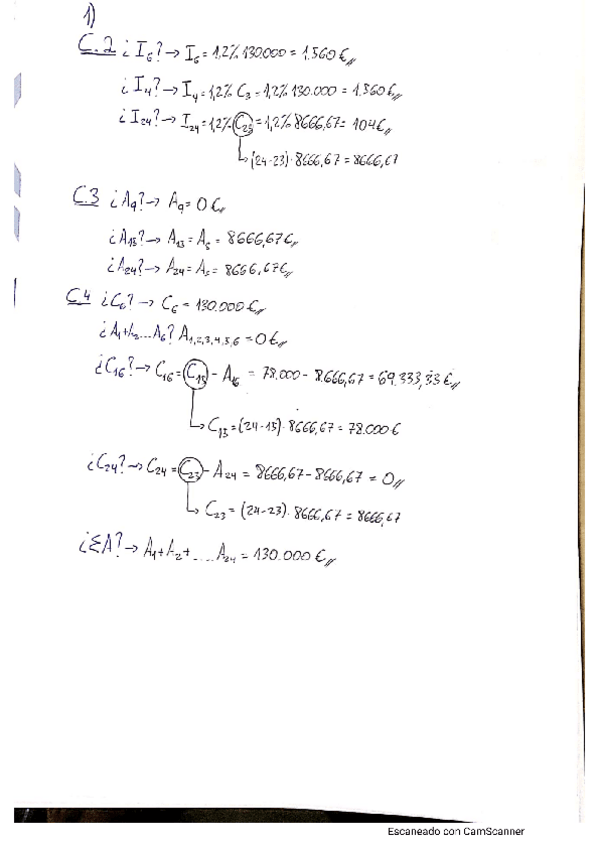 1)
C.2 ¿I₆? → I₆ = 1,2% 130.000 = 1.560 €
¿I₄? → I₄ = 1,2% C₃ = 1,2% 130.000 = 1.560 €
¿I₂₄? → I₂₄ = 1,2% C₂₃ = 1,2% 8666,67 = 104 €
(24-23) · 8666,67 = 8666,67
C.3 ¿A₉? → A₉ = 0 €
¿A₁₃? → A₁₃ = Aₛ = 8666,67 €
¿A₂₄? → A₂₄ = Aₛ = 8666,67 €
C.4 ¿C₆? → C₆ = 130.000 €
¿A₁+A₂...A₆? A₁,₂,₃,₄,₅,₆ = 0 €
¿C₁₆? → C₁₆ = C₁₅ - A₁₆ = 78.000 - 8.666,67 = 69.333,33 €
C₁₅ = (24-15) · 8666,67 = 78.000 €
¿C₂₄? → C₂₄ = C₂₃ - A₂₄ = 8666,67 - 8666,67 = 0
C₂₃ = (24-23) · 8666,67 = 8666,67
¿ΣA? → A₁+A₂+ ... A₂₄ = 130.000 €
Escaneado con CamScanner